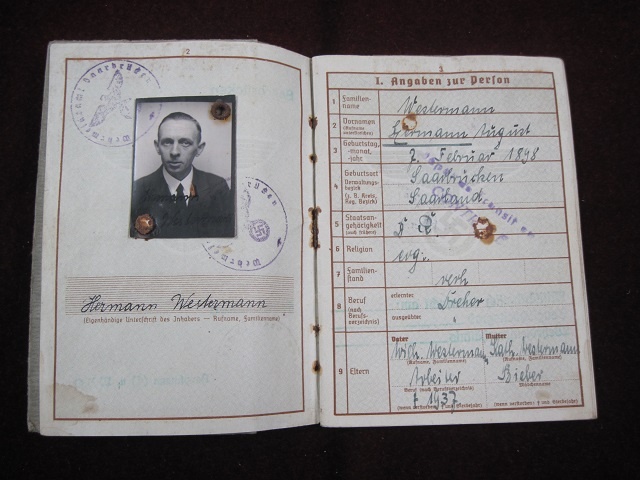 2
Wehrmeldeamt Saarbrücken
Hermann Westermann
(Eigenhändige Unterschrift des Inhabers — Rufname, Familienname)
3
I. Angaben zur Person
1 Familienname Westermann
2 Vornamen (Rufname unterstreichen) Hermann August
3 Geburtstag, -monat, -jahr 7. Februar 1898
4 Geburtsort Verwaltungsbezirk (z. B. Kreis, Reg. Bezirk) Saarbrücken
Saarland
5 Staatsangehörigkeit (auch frühere) D. R.
6 Religion evg.
7 Familienstand verh
8 Beruf (nach Berufsverzeichnis) erlernter Dreher
ausgeübter
9 Eltern
Vater Mutter
Wilh. Westermann Kath. Westermann
(Rufname, Familienname) (Rufname, Familienname)
Arbeiter Bieber
Beruf (nach Berufsverzeichnis) (Mädchenname)
† 1937
(wenn verstorben: † und Sterbejahr) (wenn verstorben: † und Sterbejahr)